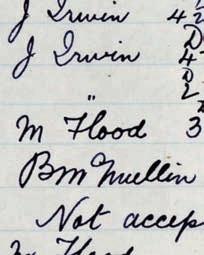 J Irwin 42
J Irwin 4
" 2
M Flood 3
B McMullin
Not accep
M Flood